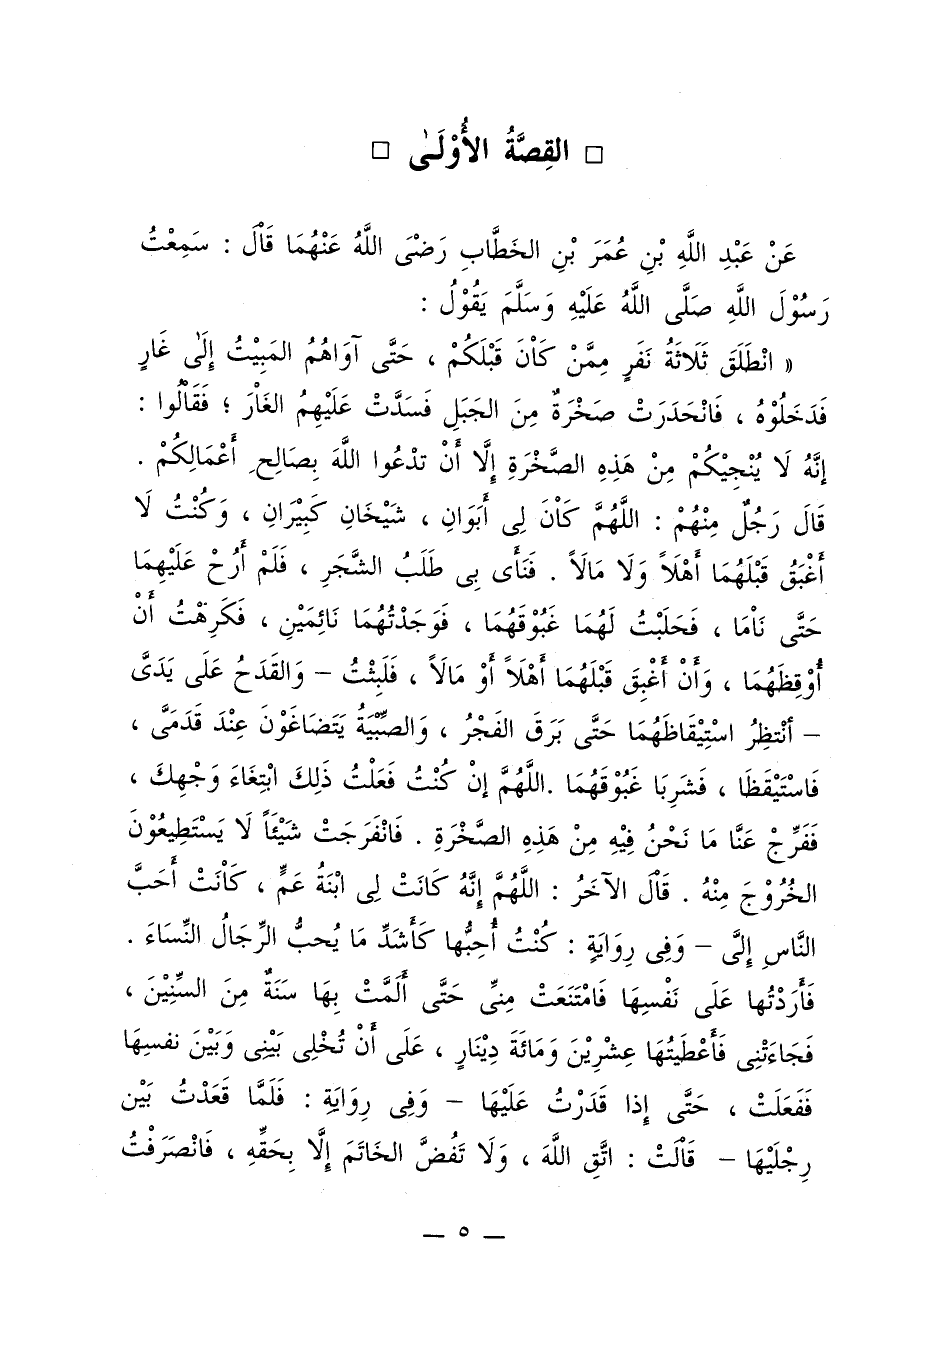 □ القِصَّةُ الأُوْلَىٰ □
عَنْ عَبْدِ اللَّهِ بْنِ عُمَرَ بْنِ الخَطَّابِ رَضْىَ اللَّهُ عَنْهُمَا قَاْلَ : سَمِعْتُ
رَسُوْلَ اللَّهِ صَلَّى اللَّهُ عَلَيْهِ وَسَلَّمَ يَقُوْلُ :
« انْطَلَقَ ثَلَاثَةُ نَفَرٍ مِمَّنْ كَاْنَ قَبْلَكُمْ ، حَتَّى آوَاهُمُ المَبِيْتُ إِلَىٰ غَارٍ
فَدَخَلُوْهُ ، فَانْحَدَرَتْ صَخْرَةٌ مِنَ الجَبَلِ فَسَدَّتْ عَلَيْهِمُ الغَاْرَ ؛ فَقَالُوا :
إِنَّهُ لَا يُنْجِيْكُمْ مِنْ هَذِهِ الصَّخْرَةِ إِلَّا أَنْ تدْعُوا اللَّهَ بِصَالِحِ أَعْمَالِكُمْ .
قَالَ رَجُلٌ مِنْهُمْ : اللَّهُمَّ كَاْنَ لِى أَبَوَانِ ، شَيْخَانِ كَبِيْرَانِ ، وَكُنْتُ لَا
أَغْبَقُ قَبْلَهُمَا أَهْلَاً وَلَا مَالَاً . فَنَأَى بِى طَلَبُ الشَّجَرِ ، فَلَمْ أَرُحْ عَلَيْهِمَا
حَتَّى نَاْمَا ، فَحَلَبْتُ لَهُمَا غَبُوْقَهُمَا ، فَوَجَدْتُهُمَا نَائِمَيْنِ ، فَكَرِهْتُ أَنْ
أُوْقِظَهُمَا ، وَأَنْ أَغْبِقَ قَبْلَهُمَا أَهْلَاً أَوْ مَالَاً ، فَلَبِثْتُ – وَالقَدَحُ عَلَى يَدَىَّ
– أَنْتظِرُ اسْتِيْقَاظَهُمَا حَتَّى بَرَقَ الفَجْرُ ، وَالصِّبْيَةُ يَتَضَاغَوْنَ عِنْدَ قَدَمَىَّ ،
فَاسْتَيْقَظَا ، فَشَرِبَا غَبُوْقَهُمَا .اللَّهُمَّ إنْ كُنْتُ فَعَلْتُ ذَلِكَ ابْتِغَاءَ وَجْهِكَ ،
فَفَرِّجْ عَنَّا مَا نَحْنُ فِيْهِ مِنْ هَذِهِ الصَّخْرَةِ . فَانْفَرَجَتْ شَيْئَاً لَا يَسْتَطِيعُوْنَ
الخُرُوْجَ مِنْهُ . قَاْلَ الآخَرُ : اللَّهُمَّ إِنَّهُ كَانَتْ لِى ابْنَةُ عَمٍّ ، كَانَتْ أَحَبَّ
النَّاسِ إِلىَّ – وَفِى رِوَايَةٍ : كُنْتُ أُحِبُّها كَأَشَدِّ مَا يُحبُّ الرِّجَالُ النِّسَاءَ .
فَأَرَدْتُها عَلَى نَفْسِهَا فَامْتَنَعَتْ مِنىِّ حَتَّى أَلَمَّتْ بِهَا سَنَةٌ مِنَ السِّنِيْنَ ،
فَجَاءَتْنِى فَأَعْطَيْتُهَا عِشْرِيْنَ وَمَائَةَ دِيْنَارٍ ، عَلَى أَنْ تُخْلِى بَيْنِى وَبَيْنَ نفسِهَا
فَفَعَلَتْ ، حَتَّى إِذا قَدَرْتُ عَلَيْهَا – وَفِى رِوَايَةِ : فَلَمَّا قَعَدْتُ بَيْن
رِجْلَيْهَا – قَاْلَتْ : اتَّقِ اللَّهَ ، وَلَا تَفُضَّ الخَاتَمَ إِلَّا بِحَقِّهِ ، فَانْصَرَفْتُ
— ٥ —